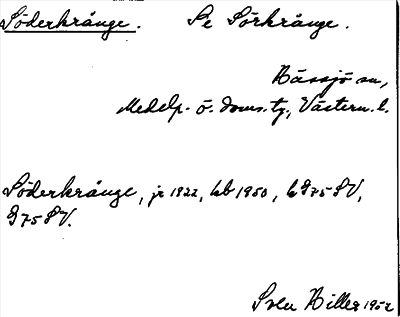 Söderkrånge. Se Sörkrånge.
Hässjö sn,
Medelp. ö. doms.tg, Västern. l.
Söderkrånge, jr 1922, kb 1950, k G75SV,
G75SV.
Sven Hiller 1952